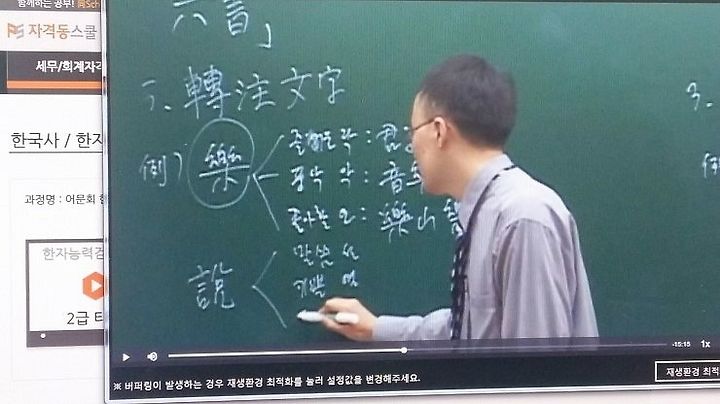 함께하는 공부!
자격동스쿨
세무/회계자격
한국사 / 한자
과정명 : 어문회 한
한자능력검
2급 터
六書」
5. 轉注文字
例) 樂
즐거울 락 :
풍악 악 : 音
좋아할 요 : 樂山
說
말씀 설
기쁠 열
3.
-15:15 1x
※ 버퍼링이 발생하는 경우 재생환경 최적화를 눌러 설정값을 변경해주세요.
재생환경 최적